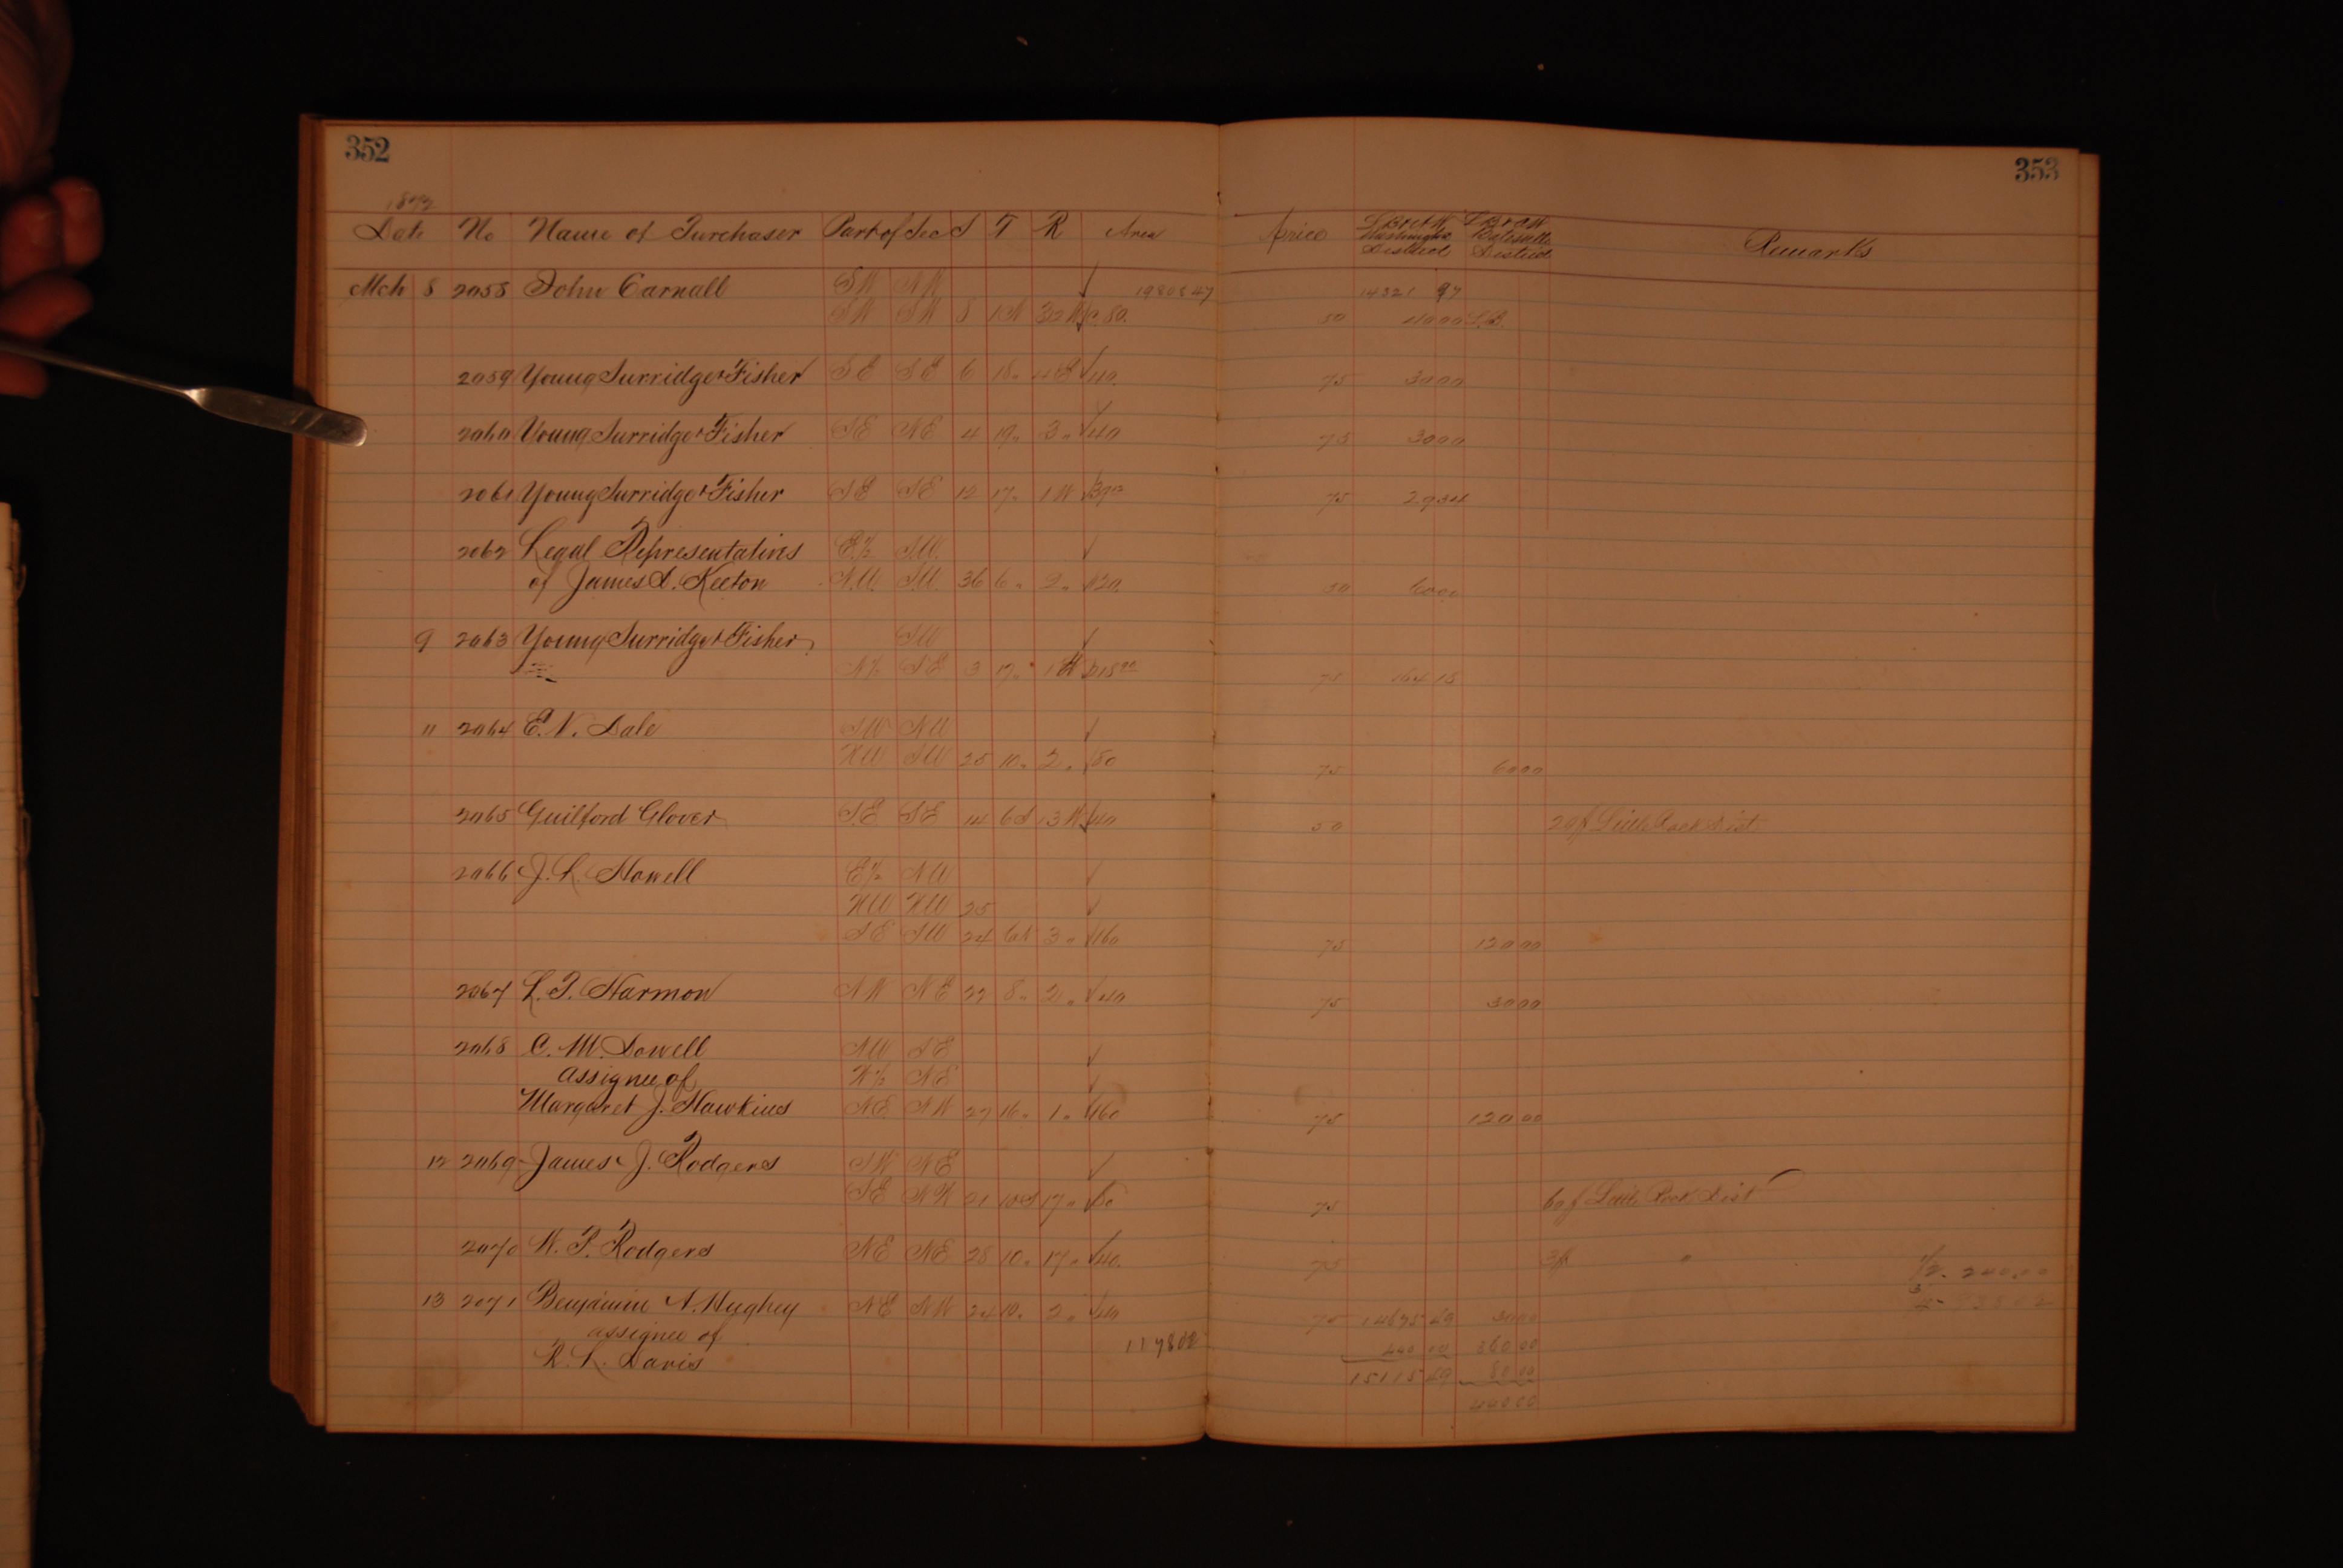 352
353
1892
Date No Name of Purchaser Part of Sec S T R Area Price Remarks
District District
Mch 8 2058 John Carnall SW NW 14321 97
SW SW 8 1N 32W 80. 50 4000
2059 Young Surridge & Fisher SE SE 6 18 " 4E 40. 75 3000
2060 Young Surridge & Fisher SE NE 4 19 " 3 " 40 75 3000
2061 Young Surridge & Fisher SE SE 12 17 " 1W 39 12 75 2934
2062 Legal Representatives E½ SW.
of James S. Keeton N.W. S.W. 36 6 " 2 " 120. 50 6000
9 2063 Young Surridge & Fisher SW
N½ SE 3 17 " 75 164 15
11 2064 E. V. Dale SW NW
NW SW 25 10 " 2 " 80 75 6000
2065 Guilford Glover SE SE 14 6S 13W 40 50 Little Rock Dist
2066 J. L. Howell E½ NW
NW NW 25
SE SW 24 6N 3 " 160 75 12000
2067 L. T. Harmon NW NE 22 8 " 2 " 40 75 3000
2068 C. M. Dowell NW SE
assignee of W½ NE
Margaret J. Hawkins NE NW 27 16 " 1 " 160 75 12000
12 2069 James J. Rodgers SW NE
SE NW 21 10S 17 " 80 75 Little Rock Dist
2070 W. P. Rodgers NE NE 28 10 " 17 " 40. 75 "
13 2071 Benjamin A. Hughey NE NW 24 10 " 2 " 40 75 14675 49 3000
assignee of 117802 440 00 360 00
R. L. Davis 15115 49 80 00
440 00
½ - 240.00